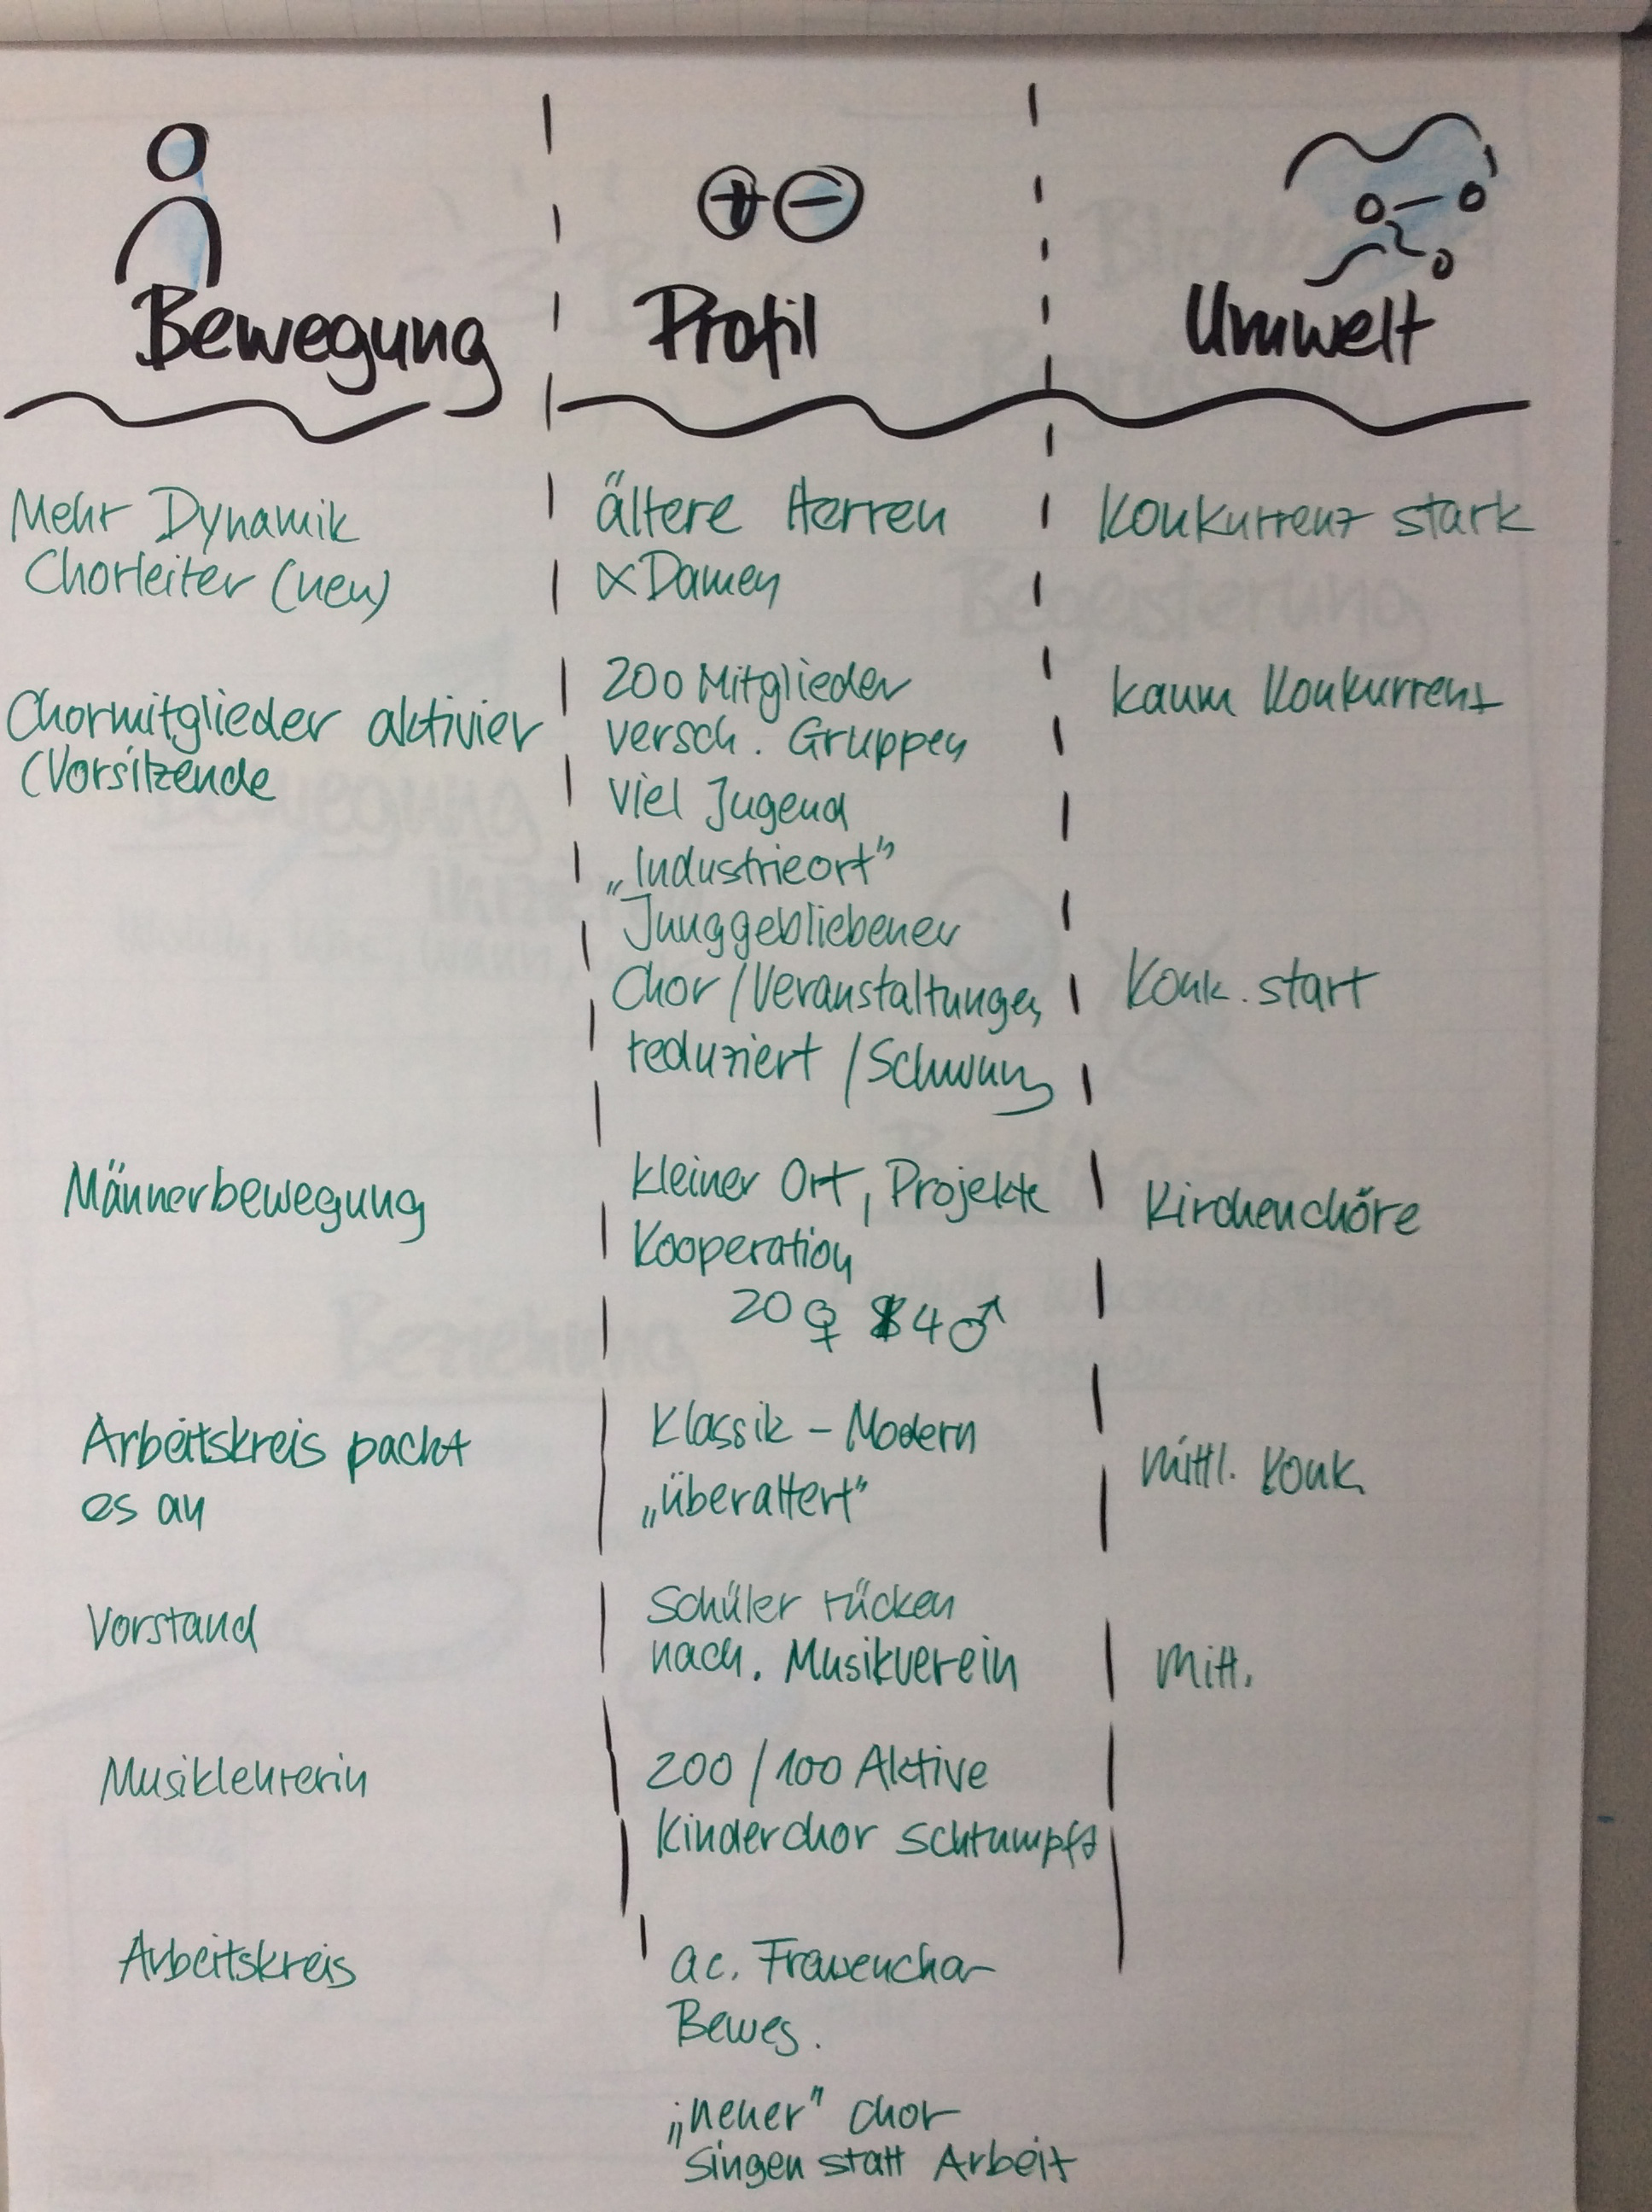 Bewegung
Profil
Umwelt
Mehr Dynamik
Chorleiter (neu)
ältere Herren
Damen
Konkurrenz stark
Chormitglieder aktivier
(Vorsitzende
200 Mitglieder
versch. Gruppen
viel Jugend
„Industrieort"
Junggebliebener
Chor / Veranstaltungen
reduziert / Schwung
kaum Konkurrenz
Konk. start
Männerbewegung
kleiner Ort, Projekte
Kooperation
20 ♀ 4 ♂
Kirchenchöre
Arbeitskreis packt
es an
Klassik - Modern
„überaltert"
mittl. Konk.
Vorstand
Schüler rücken
nach. Musikverein
mitt.
Musiklehrerin
200 / 100 Aktive
Kinderchor schrumpft
Arbeitskreis
ac. Frauenchor
Beweg.
„neuer" Chor
Singen statt Arbeit